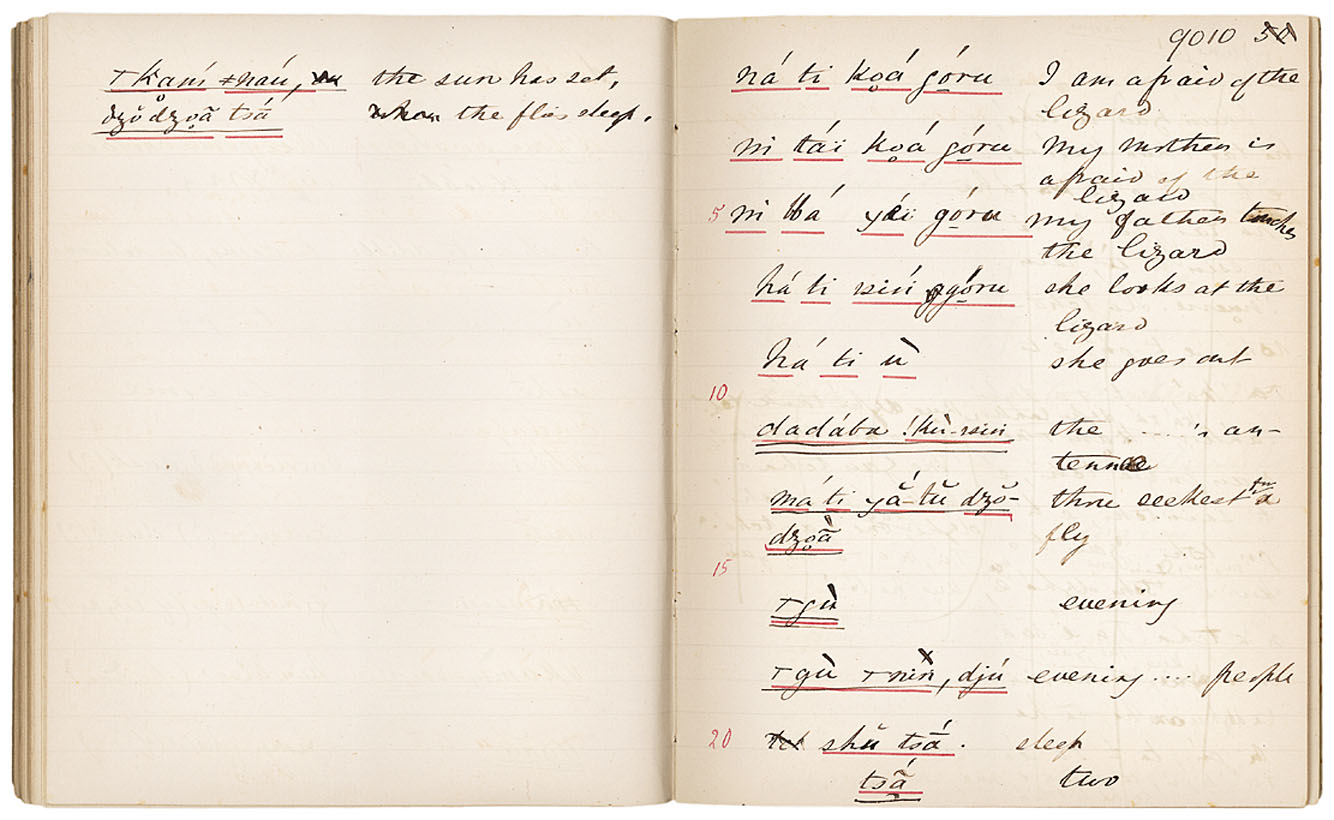 ⊤kạní ≠naú, the sun has set,
dzŏdzo̤ã tsá̃ the flies sleep.
9010
ná ti ko̤á góru I am afraid of the
lizard
ni tái ko̤á góru my mother is
afraid of the
lizard
5 ni bá yái góru my father touches
the lizard
há ti góru she looks at the
lizard
há ti ù she goes out
10
dadába !kù-nsin the ..... 's an-
tennae
má ti yắ-tŭ dzŏ- thou seekest for a
dzo̤ã̀ fly
15
⊤gù evening
⊤gù ⊤nìn, djú evening .... people
20 shŭ tsá̃. sleep
tsá̃ two